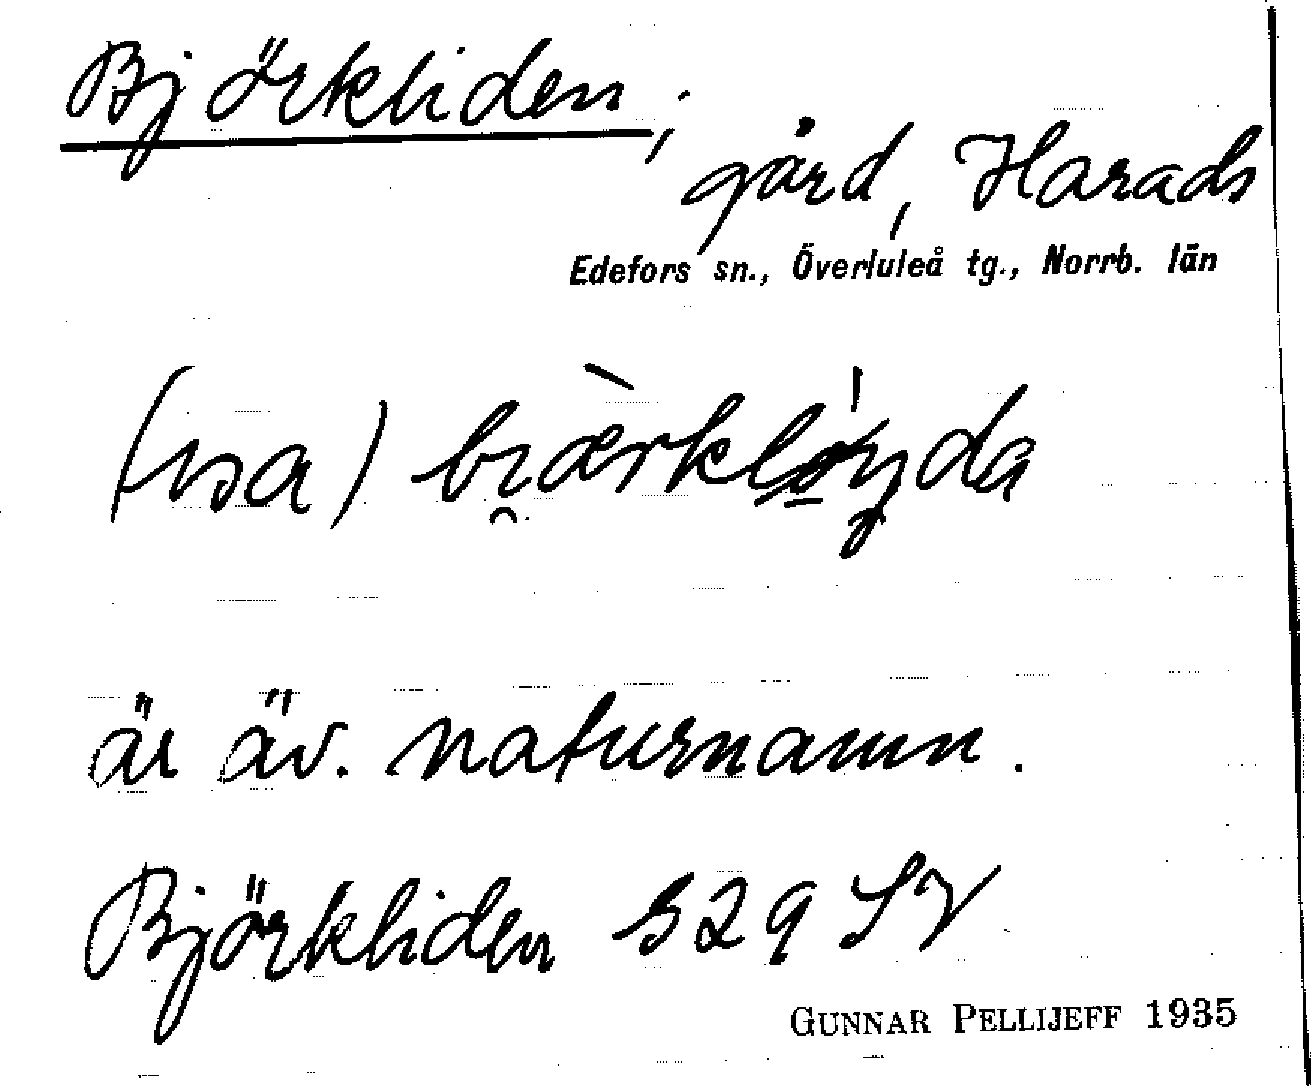 Björkliden,
gård, Harads
Edefors sn., Överluleå tg., Norrb. län
(usa) bi̯ærkløyda
är äv. naturnamn.
Björkliden S29 SV
GUNNAR PELLIJEFF 1935